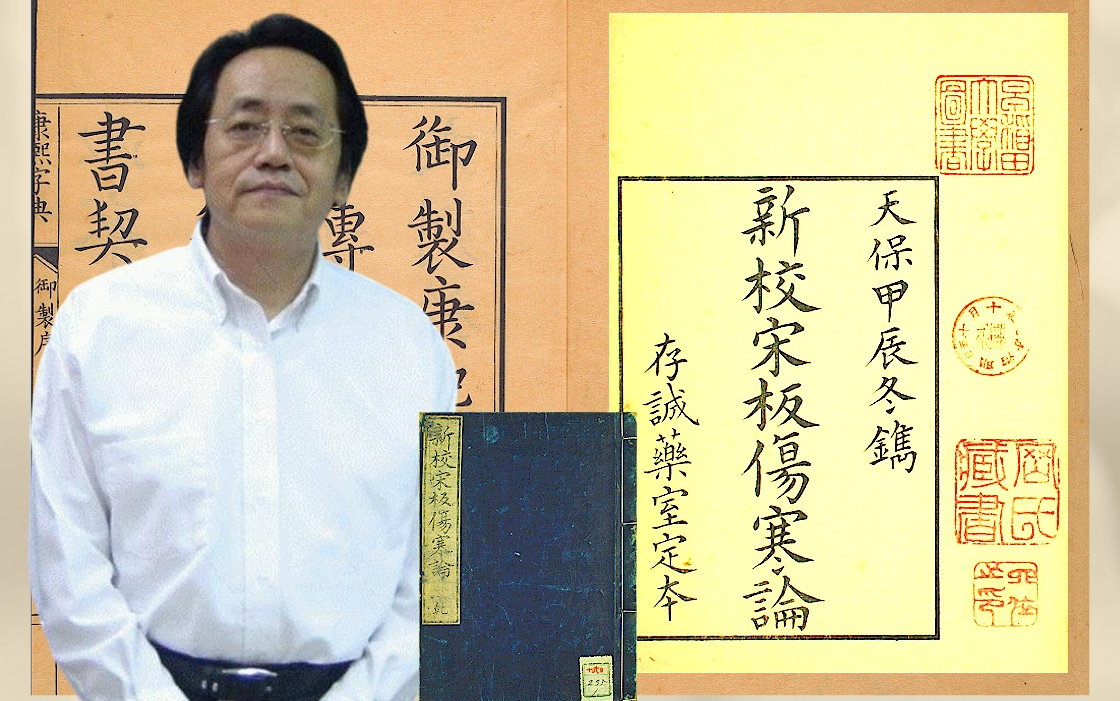 天保甲辰冬鐫
新校宋板傷寒論
存誠藥室定本
新校宋板傷寒論
御製康
書契
康熙字典
御製序